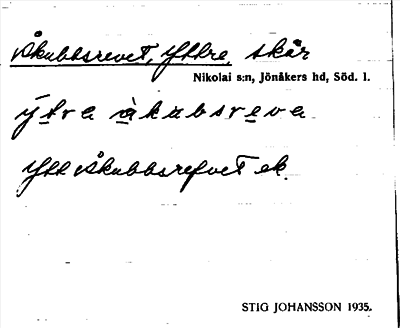 Åkubbsrevet, Yttre, skär
Nikolai s:n, Jönåkers hd, Söd. l.
ýtrа àkubsreva
Ytt Åkubbsrefvet ek.
STIG JOHANSSON 1935.